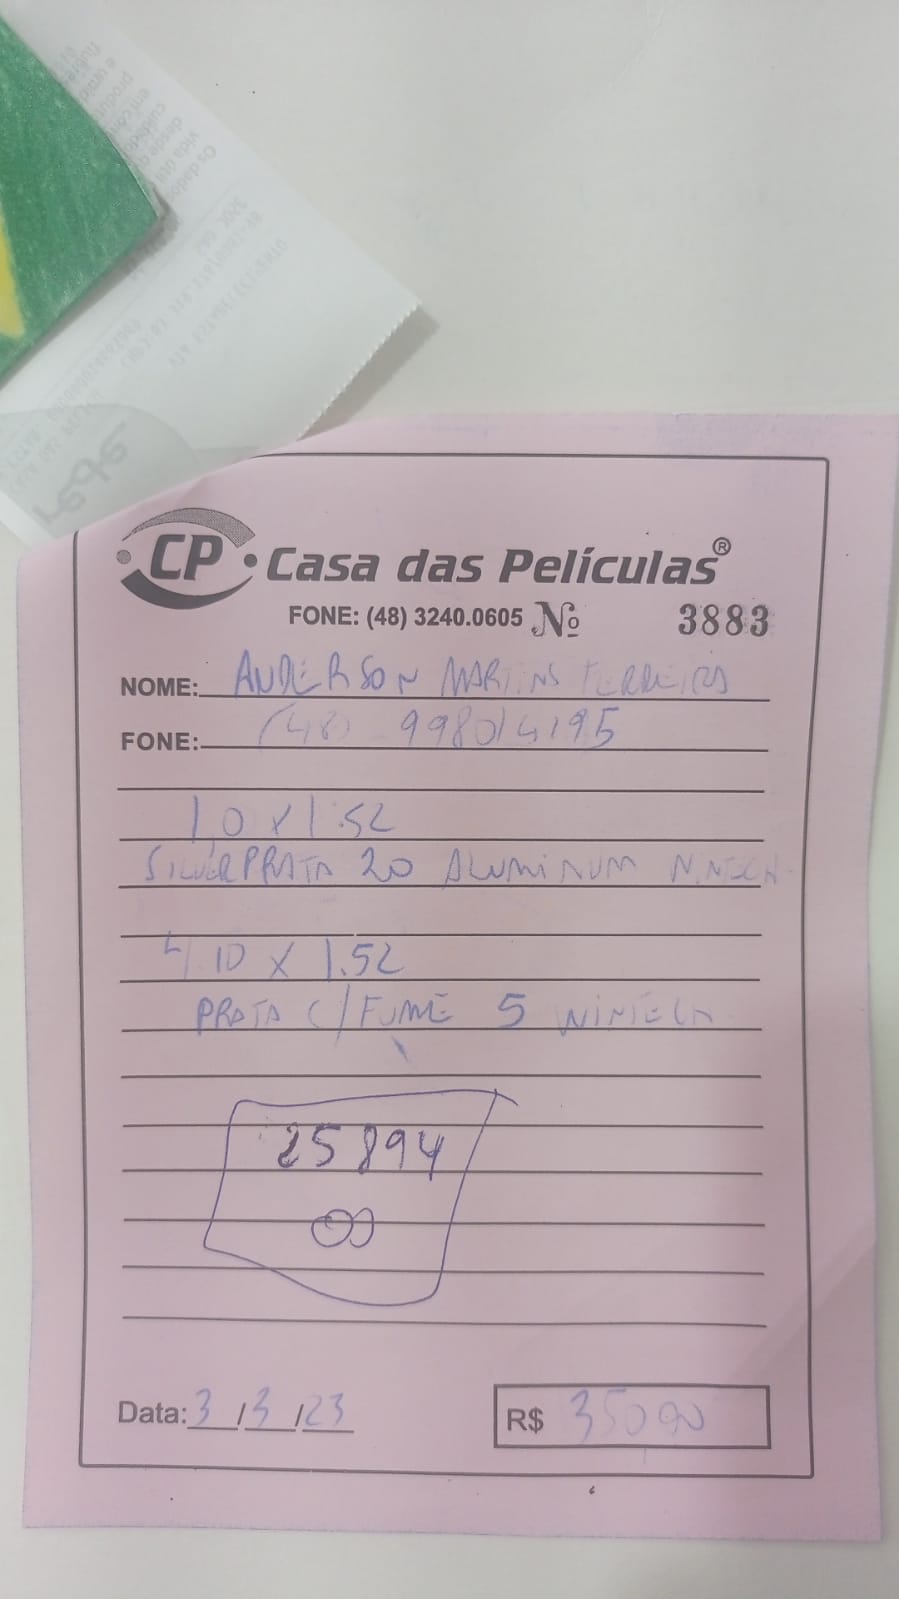 rede
CP Casa das Películas®
FONE: (48) 3240.0605 Nº 3883
NOME: ANDERSON MARTINS FERREIRA
FONE: (48) 998014195
1,0 x 1.52
SILVER PRATA 20 ALUMINUM WINTECH
4.10 x 1.52
PRATA C/ FUME 5 WINTECH
25894
Data: 3/3/23 R$ 350